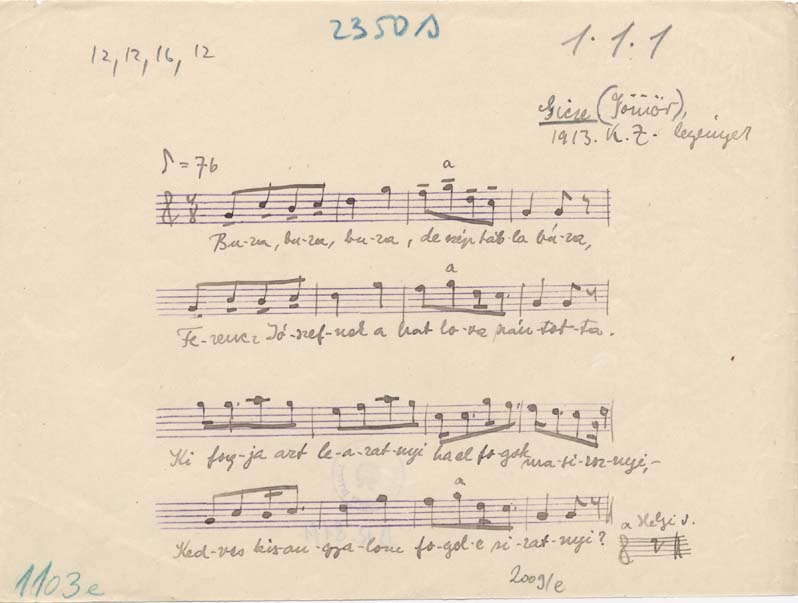 2350 s
12, 12, 16, 12
1.1.1
Gicse (Gömör),
1913. K. Z. legények
♪ = 76
a
Bu-za, bu-za, bu-za, de szép táb-la bú-za,
a
Fe-rencz Jó-szef-nek a hat lo-va szán-tot-ta.
Ki fog-ja azt le-a-rat-nyi ha el fo-gok ma-si-roz-nyi,-
a
Ked-ves kis an-gya-lom fo-gol-e si-rat-nyi?
a Helyi v.
1103e
2009/e